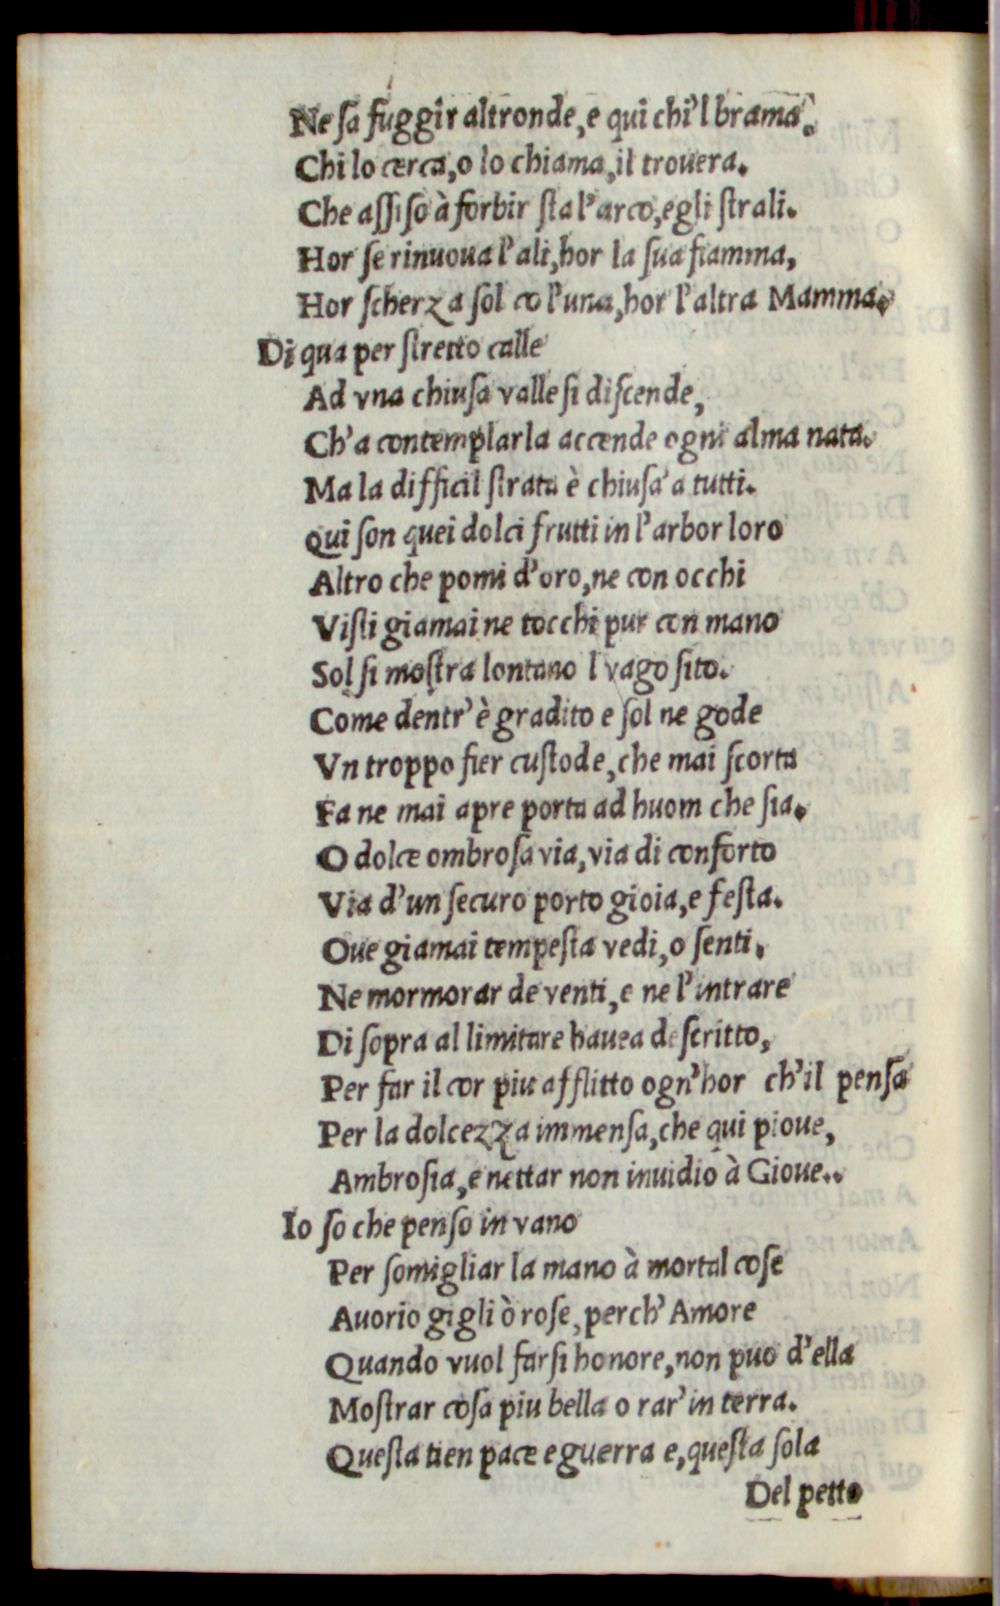 Ne ſa fuggir altronde, e qui chi'l brama.
Chi lo cerca, o lo chiama, il trouera.
Che aſſiſo à forbir ſta l'arco, e gli ſtrali.
Hor ſe rinuoua l'ali, hor la ſua fiamma,
Hor ſcherza ſol co l'una, hor l'altra Mamma.
Di qua per ſtretto calle
Ad vna chiuſa valle ſi diſcende,
Ch'a contemplarla accende ogni alma nata.
Ma la difficil ſtrata è chiuſa' a tutti.
Qui ſon quei dolci frutti in l'arbor loro
Altro che pomi d'oro, ne con occhi
Viſti giamai ne tocchi pur con mano
Sol ſi moſtra lontano l vago ſito.
Come dentr' è gradito e ſol ne gode
Vn troppo fier cuſtode, che mai ſcorta
Fa ne mai apre porta ad huom che ſia.
O dolce ombroſa via, via di conforto
Via d'un ſecuro porto gioia, e feſta.
Oue giamai tempeſta vedi, o ſenti.
Ne mormorar de venti, e ne l'intrare
Di ſopra al limitare hauea deſcritto,
Per far il cor piu afflitto ogn'hor ch'il penſa
Per la dolcezza immenſa, che qui pioue,
Ambroſia, e nettar non inuidio à Gioue..
Io ſo che penſo in vano
Per ſomigliar la mano à mortal coſe
Auorio gigli ò roſe, perch' Amore
Quando vuol farſi honore, non puo d'ella
Moſtrar coſa piu bella o rar' in terra.
Queſta tien pace e guerra e, queſta ſola
Del petto